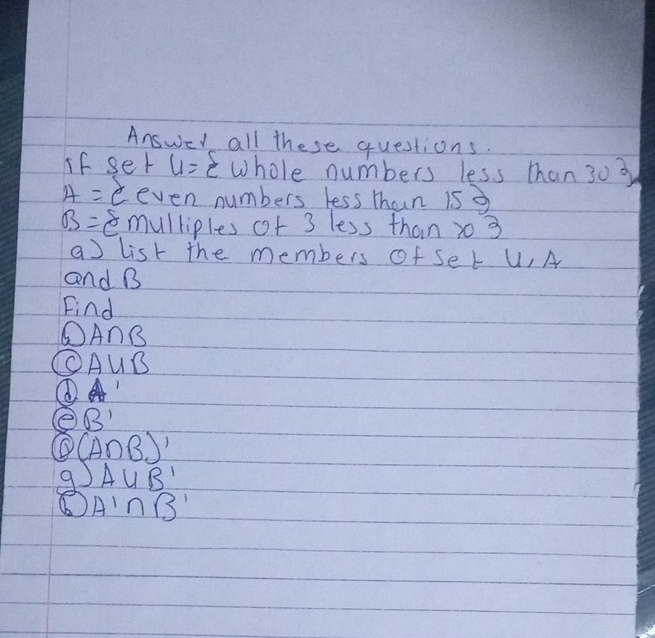 Answer all these questions.
If set U={ whole numbers less than 30}
A = { even numbers less than 15}
B = { multiples of 3 less than 20 }
a) list the members of set U, A
and B
Find
(b) A∩B
(c) A∪B
(d) A'
(e) B'
(f) (A∩B)'
g) A∪B'
(h) A'∩B'